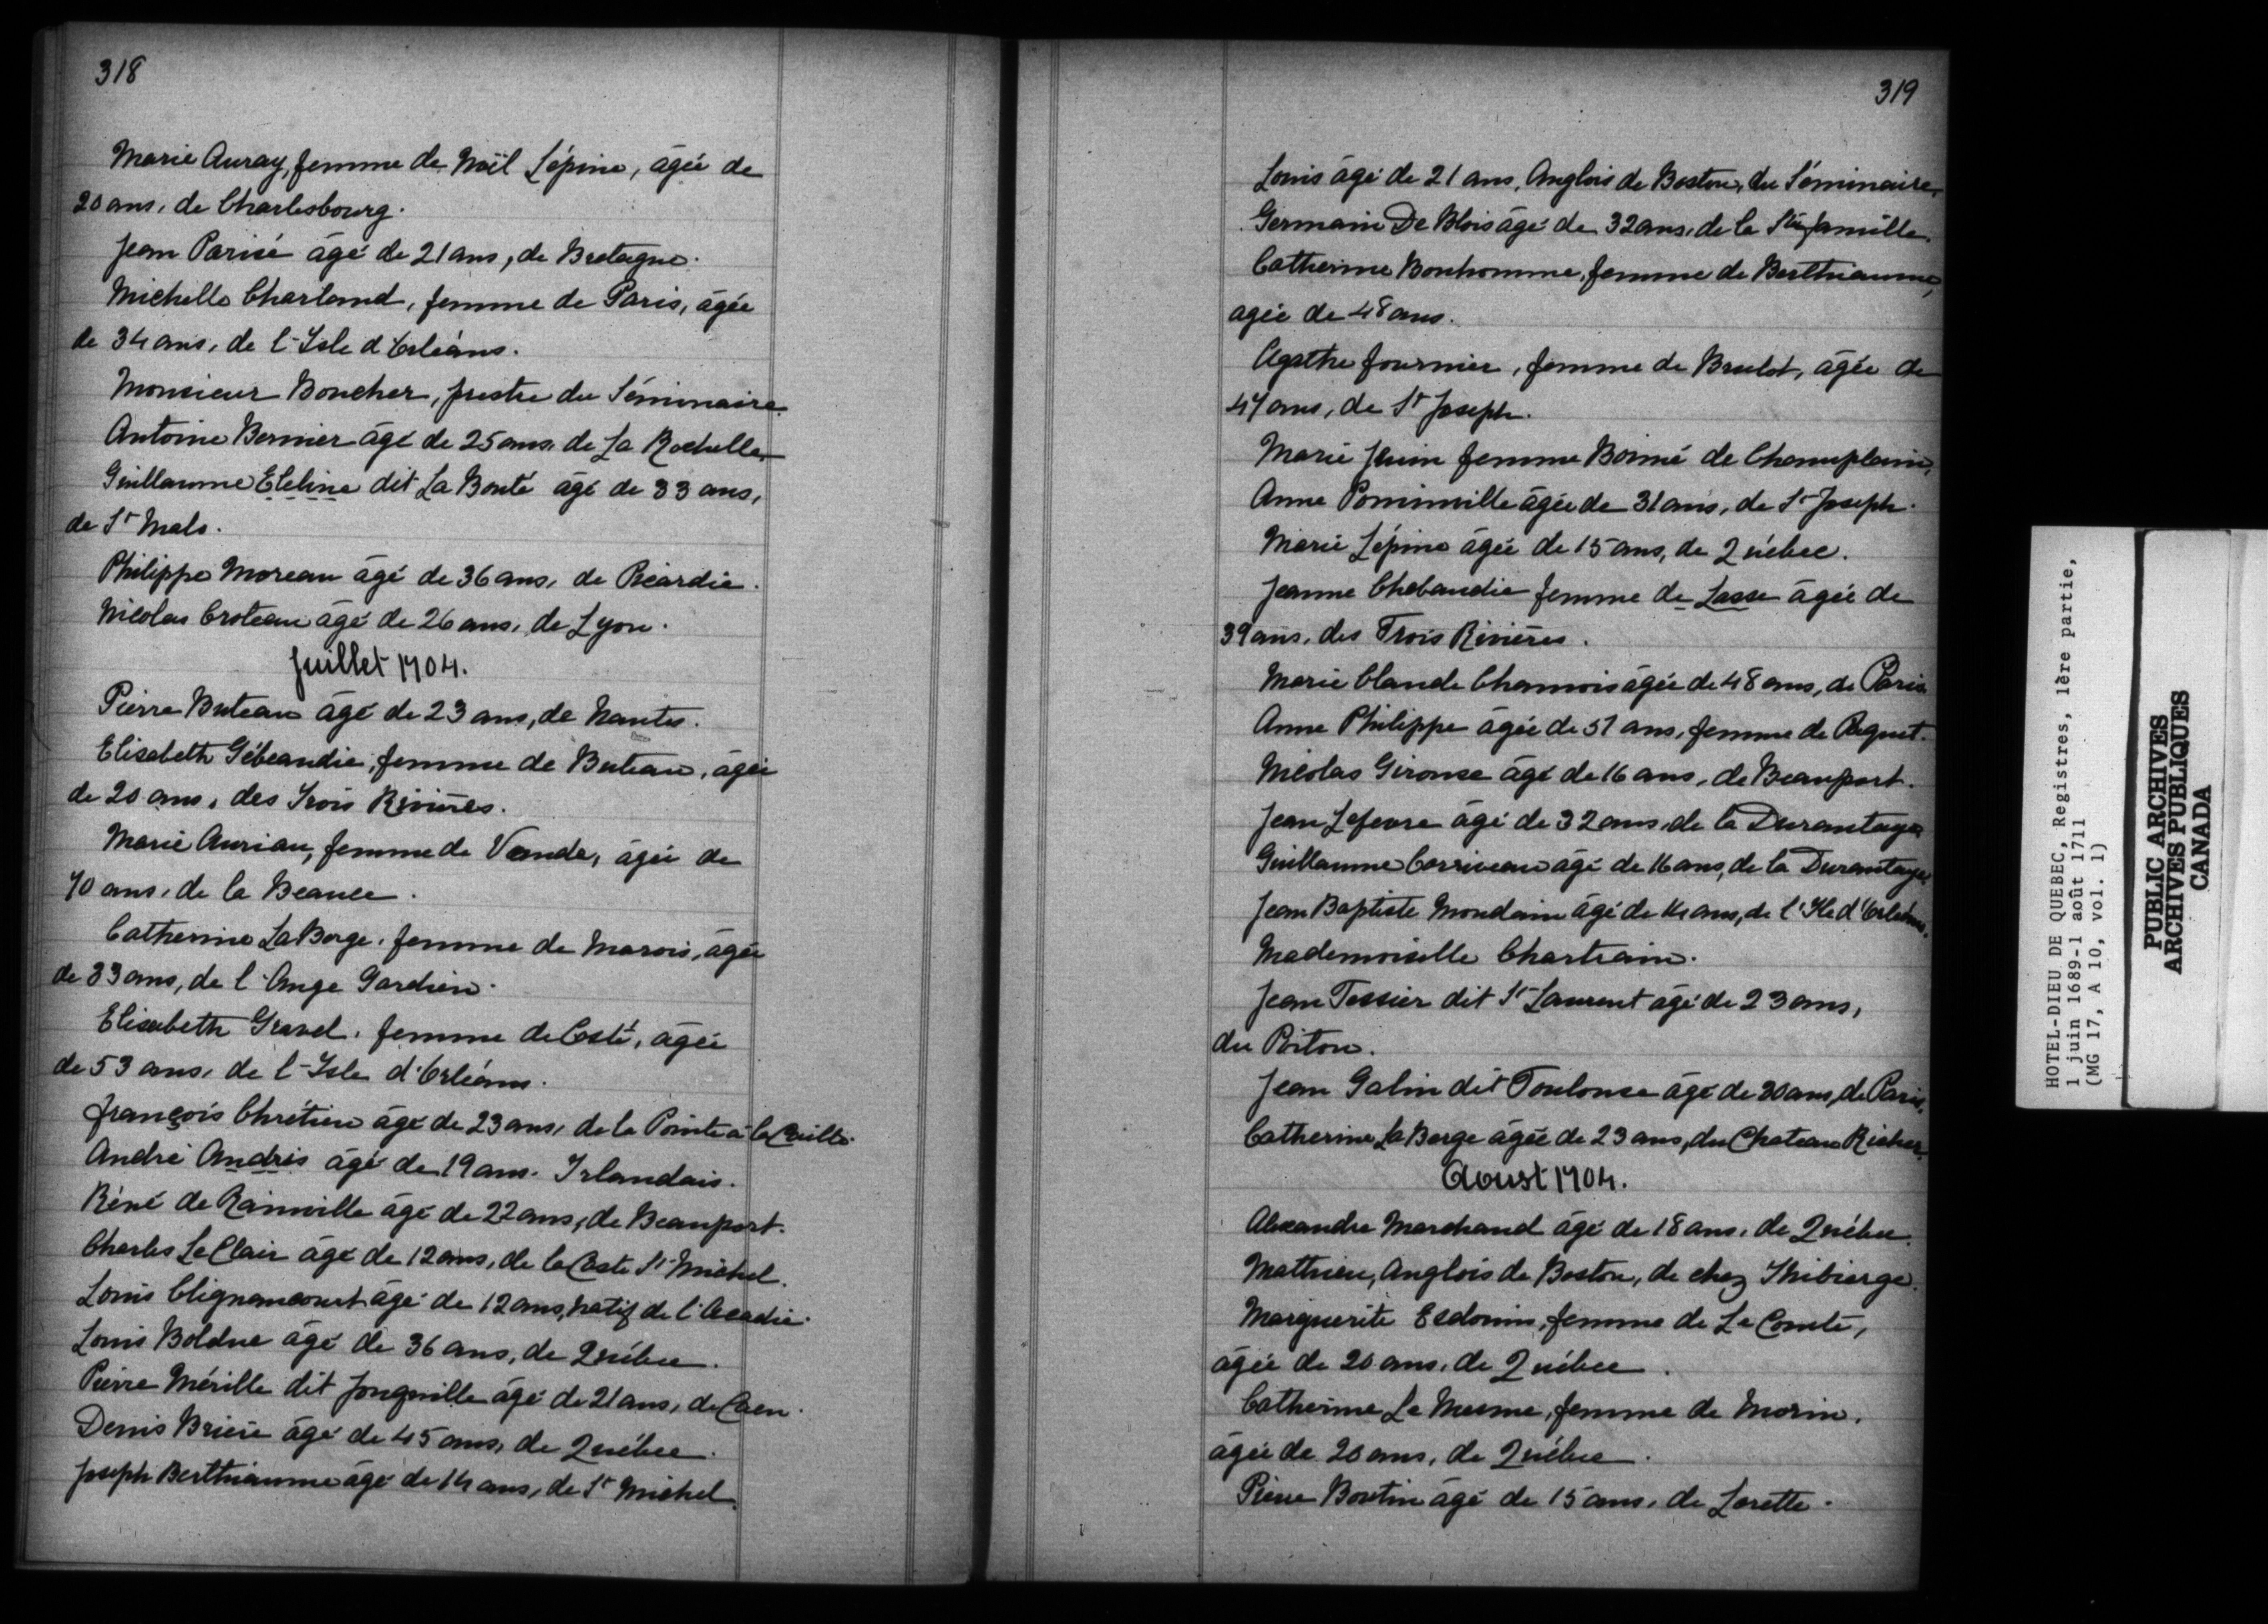 318
Marie Auray, femme de Noël Lépine, âgée de
20 ans, de Charlesbourg.
Jean Parisé âgé de 21 ans, de Bretagne.
Michelle Charland, femme de Paris, âgée
de 34 ans, de l'Isle d'Orléans.
Monsieur Boucher, prestre du Séminaire.
Antoine Bernier âgé de 25 ans, de La Rochelle.
Guillaume Eleline dit La Bonté âgé de 33 ans,
de St Malo.
Philippe Moreau âgé de 36 ans, de Picardie.
Nicolas Croteau âgé de 26 ans, de Lyon.
Juillet 1704.
Pierre Buteau âgé de 23 ans, de Nantes.
Elisabeth Gébeaudie, femme de Buteau, âgée
de 20 ans, des Trois Rivières.
Marie Auriau, femme de Vanda, âgée de
70 ans, de la Beauce.
Catherine La Berge, femme de Marois, âgée
de 33 ans, de l'Ange Gardien.
Elisabeth Gravel, femme de Costé, âgée
de 53 ans, de l'Isle d'Orléans.
François Chrétien âgé de 23 ans, de la Pointe à la Caille.
André Andris âgé de 19 ans. Irlandais.
Réné de Rainville âgé de 22 ans, de Beauport.
Charles Le Clair âgé de 12 ans, de la Coste St Michel.
Louis Clignancourt âgé de 12 ans, natif de l'Acadie.
Louis Bolduc âgé de 36 ans, de Québec.
Pierre Mérille dit Jonquille âgé de 21 ans, de Caen.
Denis Brière âgé de 45 ans, de Québec.
Joseph Berthiaume âgé de 14 ans, de St Michel.
319
Louis âgé de 21 ans, Anglois de Boston, du Séminaire.
Germain De Blois âgé de 32 ans, de la Ste famille.
Catherine Bonhomme, femme de Berthiaume,
agée de 48 ans.
Agathe fournier, femme de Brulot, âgée de
47 ans, de St Joseph.
Marie Juin femme Boimé de Champlain,
Anne Pominville âgée de 31 ans, de St Joseph.
Marie Lépine âgée de 15 ans, de Québec.
Jeanne Chebaudie femme de Lasse âgée de
39 ans, des Trois Rivières.
Marie Claude Chamois âgée de 48 ans, de Paris.
Anne Philippe âgée de 51 ans, femme de Paquet.
Nicolas Girouse âgé de 16 ans, de Beauport.
Jean Lefevre âgé de 32 ans, de la Durantaye.
Guillaume Corriveau âgé de 16 ans, de la Durantaye.
Jean Baptiste Mondain âgé de 14 ans, de l'Ile d'Orléans.
Mademoiselle Chartrain.
Jean Tessier dit St Laurent âgé de 23 ans,
du Poitou.
Jean Galin dit Toulouse âgé de 30 ans, de Paris.
Catherine La Berge âgée de 23 ans, du Chateau Richer.
Aoust 1704.
Alexandre Marchand âgé de 18 ans, de Québec.
Mathieu, Anglois de Boston, de chez Thibierge.
Marguerite Esdouin, femme de Le Comte,
âgée de 20 ans, de Québec.
Catherine Le Mesme, femme de Morin,
âgée de 20 ans, de Québec.
Pierre Boutin âgé de 15 ans, de Lorette.
HOTEL-DIEU DE QUEBEC, Registres, 1ère partie,
1 juin 1689-1 août 1711
(MG 17, A 10, vol. 1)
PUBLIC ARCHIVES
ARCHIVES PUBLIQUES
CANADA